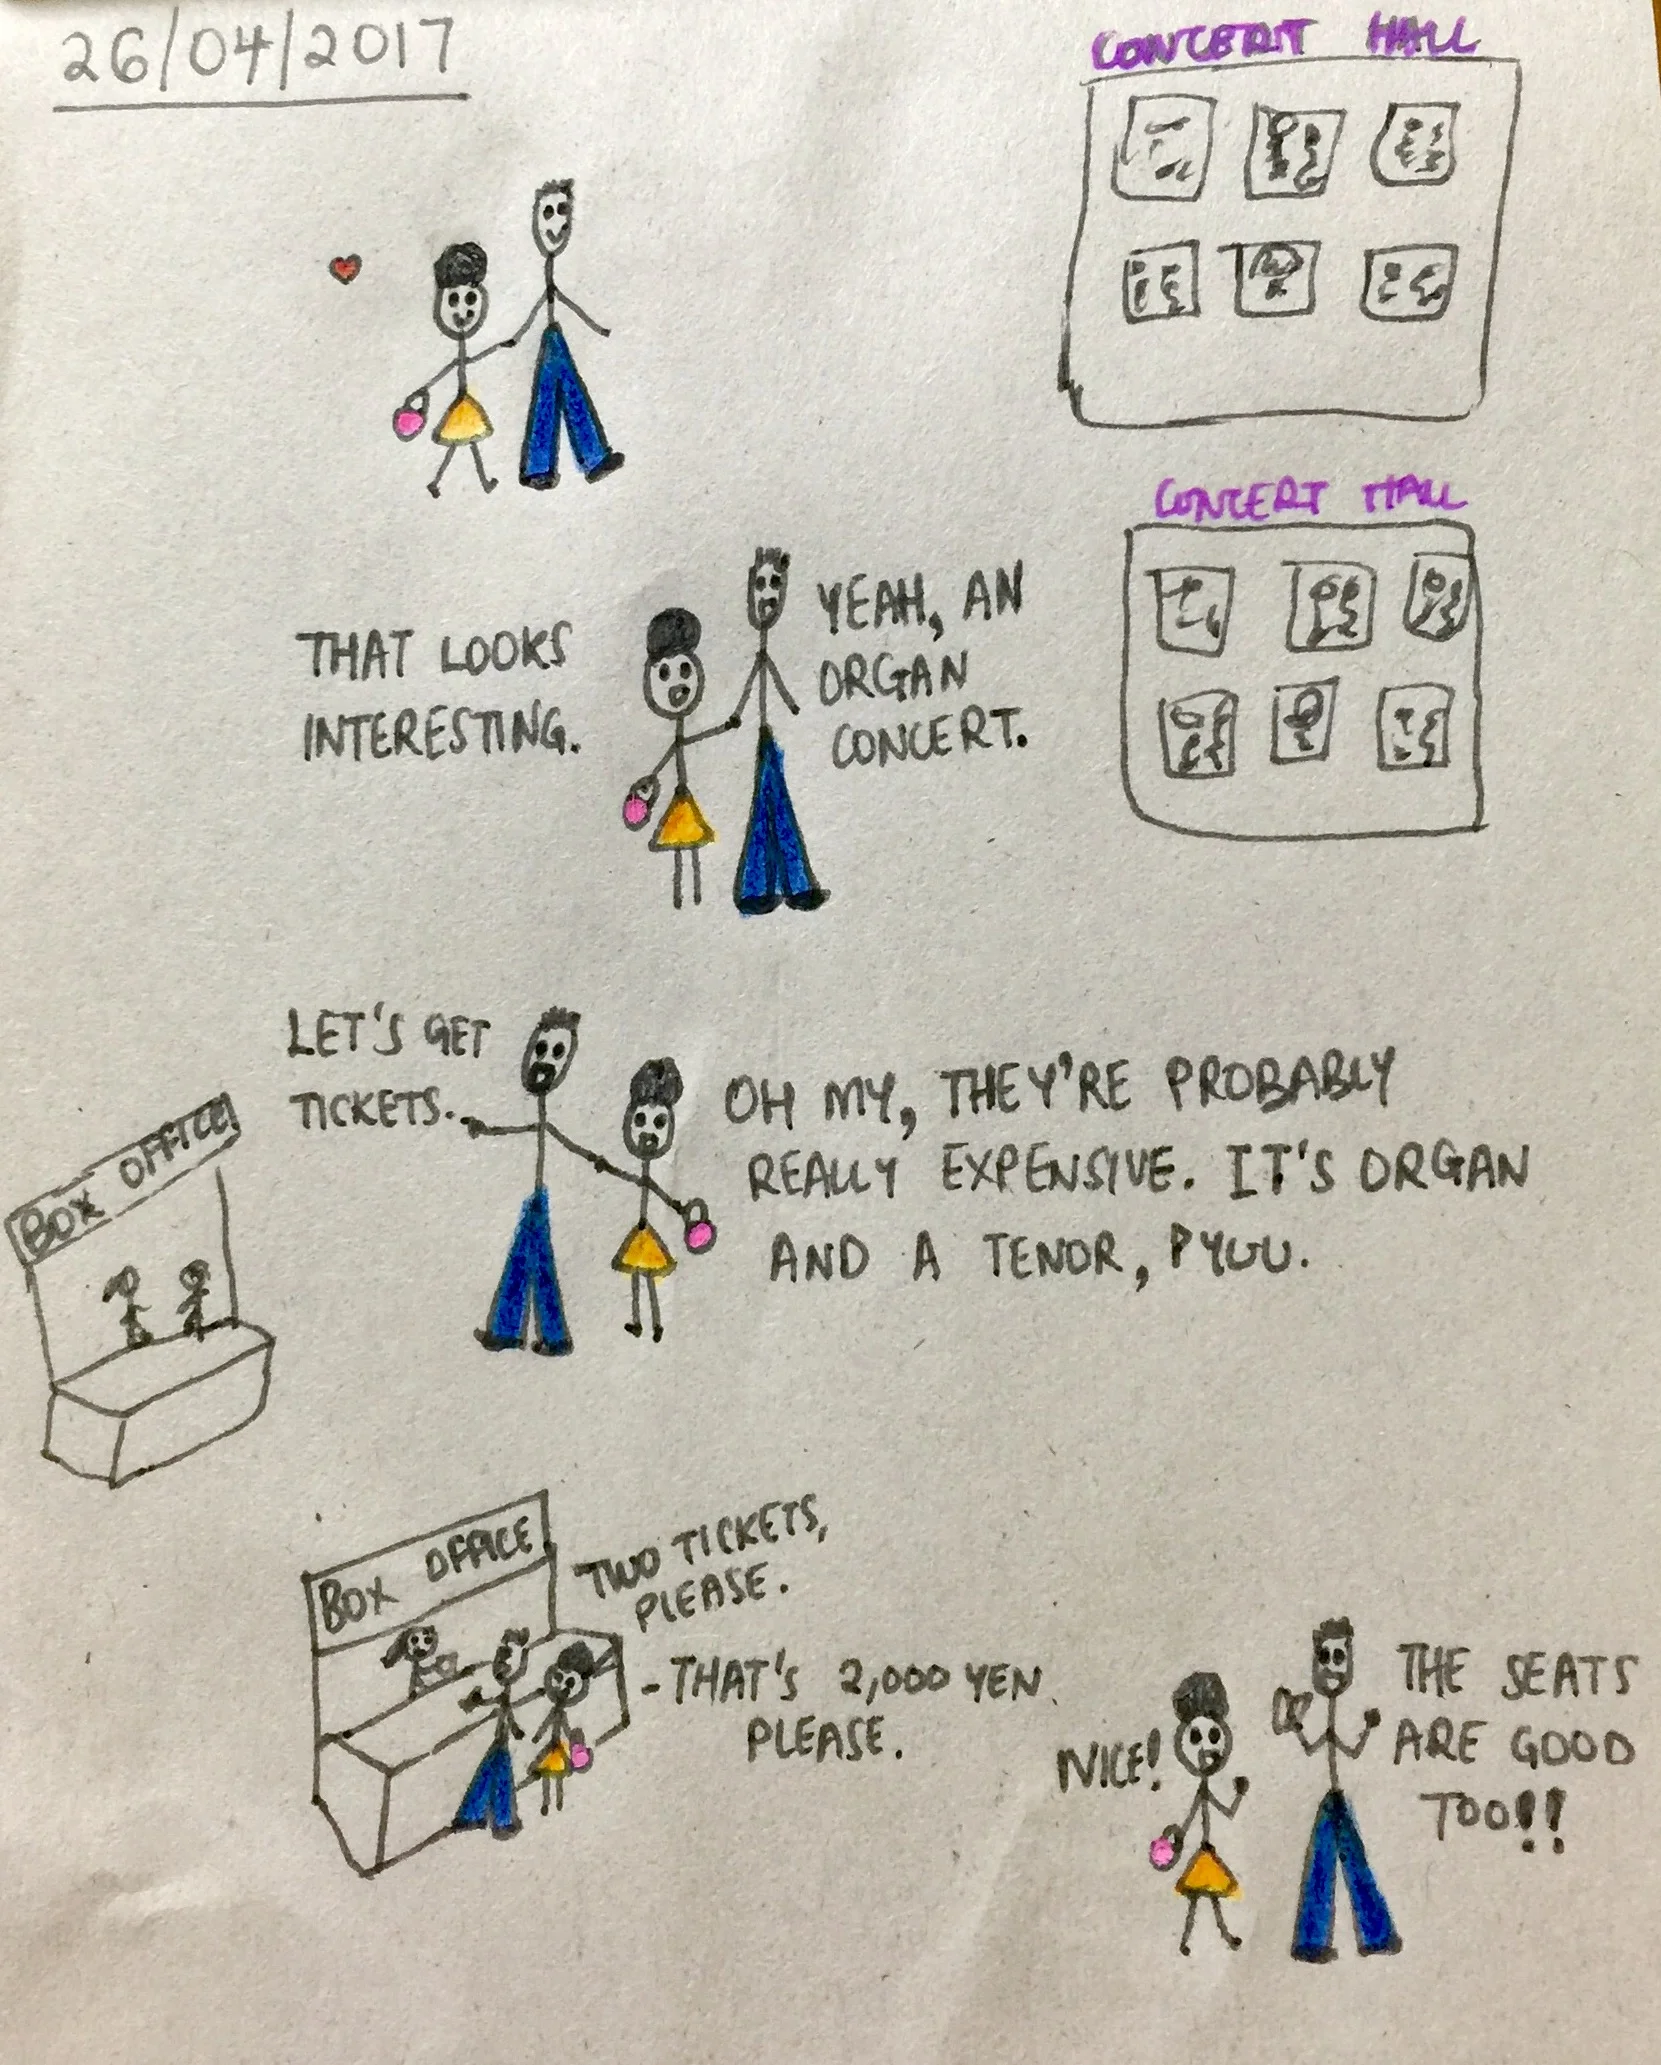 26/04/2017
CONCERT HALL
CONCERT HALL
THAT LOOKS
INTERESTING.
YEAH, AN
ORGAN
CONCERT.
LET'S GET
TICKETS.
OH MY, THEY'RE PROBABLY
REALLY EXPENSIVE. IT'S ORGAN
AND A TENOR, PYUU.
BOX OFFICE
BOX OFFICE
TWO TICKETS,
PLEASE.
-THAT'S 2,000 YEN
PLEASE.
NICE!
THE SEATS
ARE GOOD
TOO!!